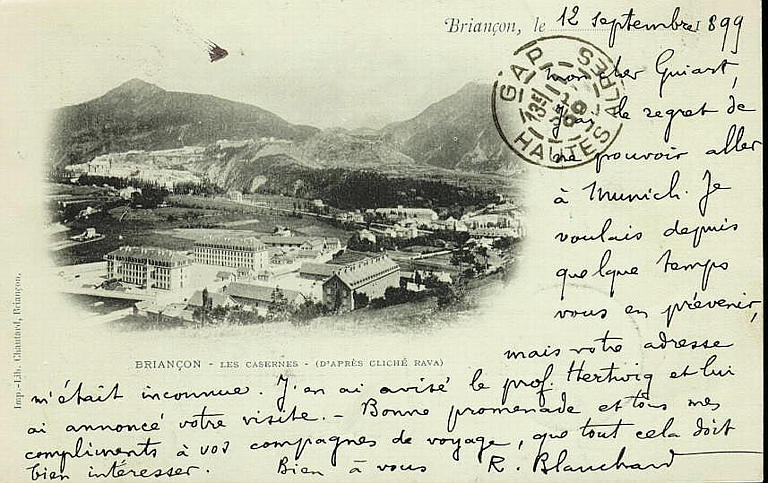 Briançon, le 12 Septembre 1899
GAP
HAUTES ALPES
13E
99
mon cher Guiart,
J'ai le regret de
ne pouvoir aller
à Munich. Je
voulais depuis
quelque temps
vous en prévenir,
mais votre adresse
Imp.-Lib. Chautard, Briançon.
BRIANÇON - LES CASERNES - (D'APRÈS CLICHÉ RAVA)
m'était inconnue. J'en ai avisé le prof. Hertwig et lui
ai annoncé votre visite. - Bonne promenade et tous mes
compliments à vos compagnes de voyage, que tout cela doit
bien intéresser. Bien à vous R. Blanchard